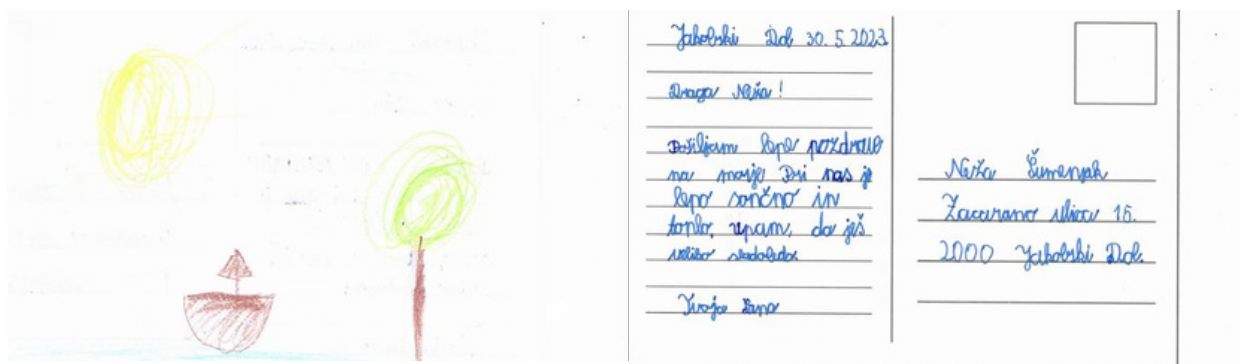 Jakobski Dol 30. 5. 2023
Draga Neža!
Pošiljam lepe pozdrave
na morje Pri nas je
lepo sončno in
toplo, upam, da ješ
veliko sladoleda.
Tvoja Lana
Neža Šumenjak
Zacarana ulica 15.
2000 Jakobski Dol.